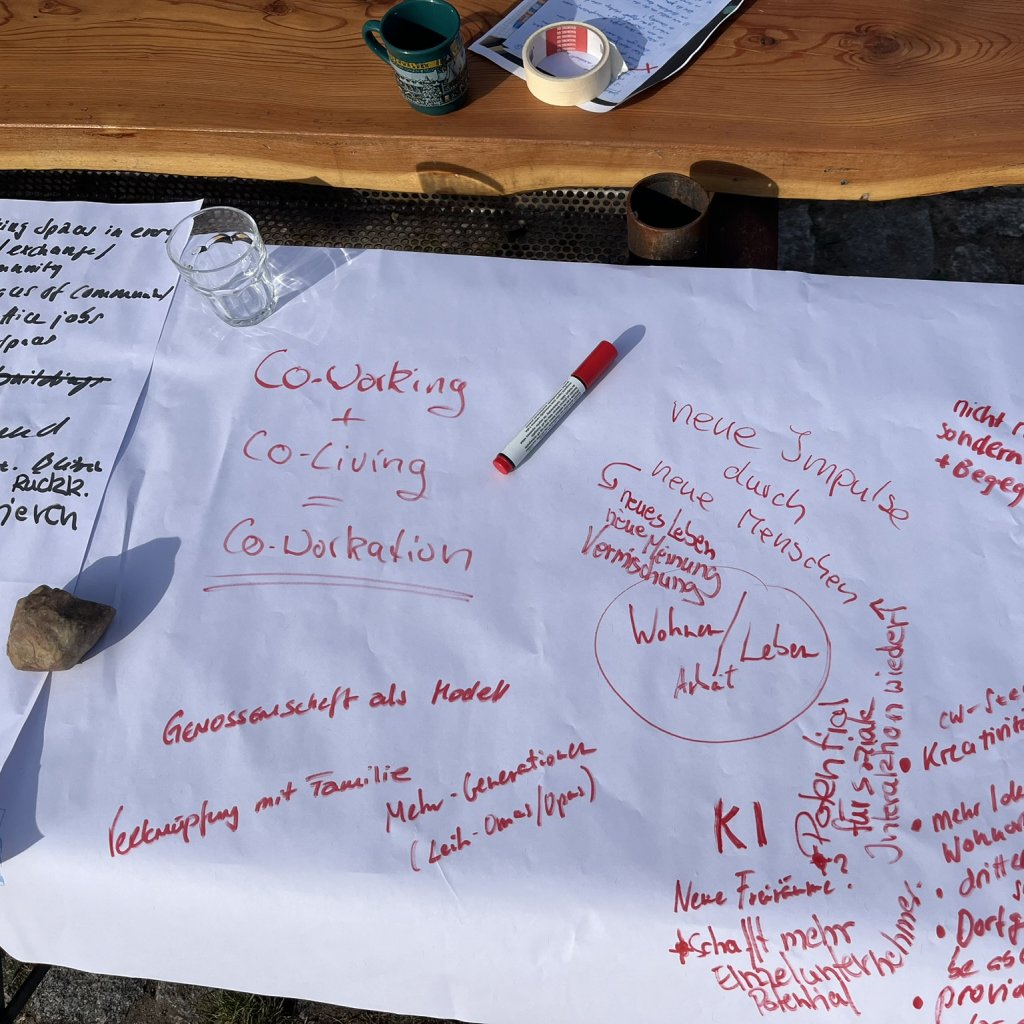 king Spaces in
exchange/
munity
of Communal/
office jobs
Spaces
buildings
und
Rückk.
Co-Working
+
Co-Living
=
Co-Workation
neue Impulse
durch
neue Menschen
neues Leben
neue Meinung
Vermischung
Wohnen/
Leben
Arbeit
Genossenschaft als Model
Verknüpfung mit Familie
Mehr-Generationen
(Leih-Omas/Opas)
KI
Neue Freiräume?
schafft mehr
Einzelunternehmer.
Potential
Potential
für soziale
Interaktion wieder
nicht
sondern
+ Begeg
cw-
• Kreativit
• mehr
Wohnor
• dritte
• Dorfg
be as
• provid